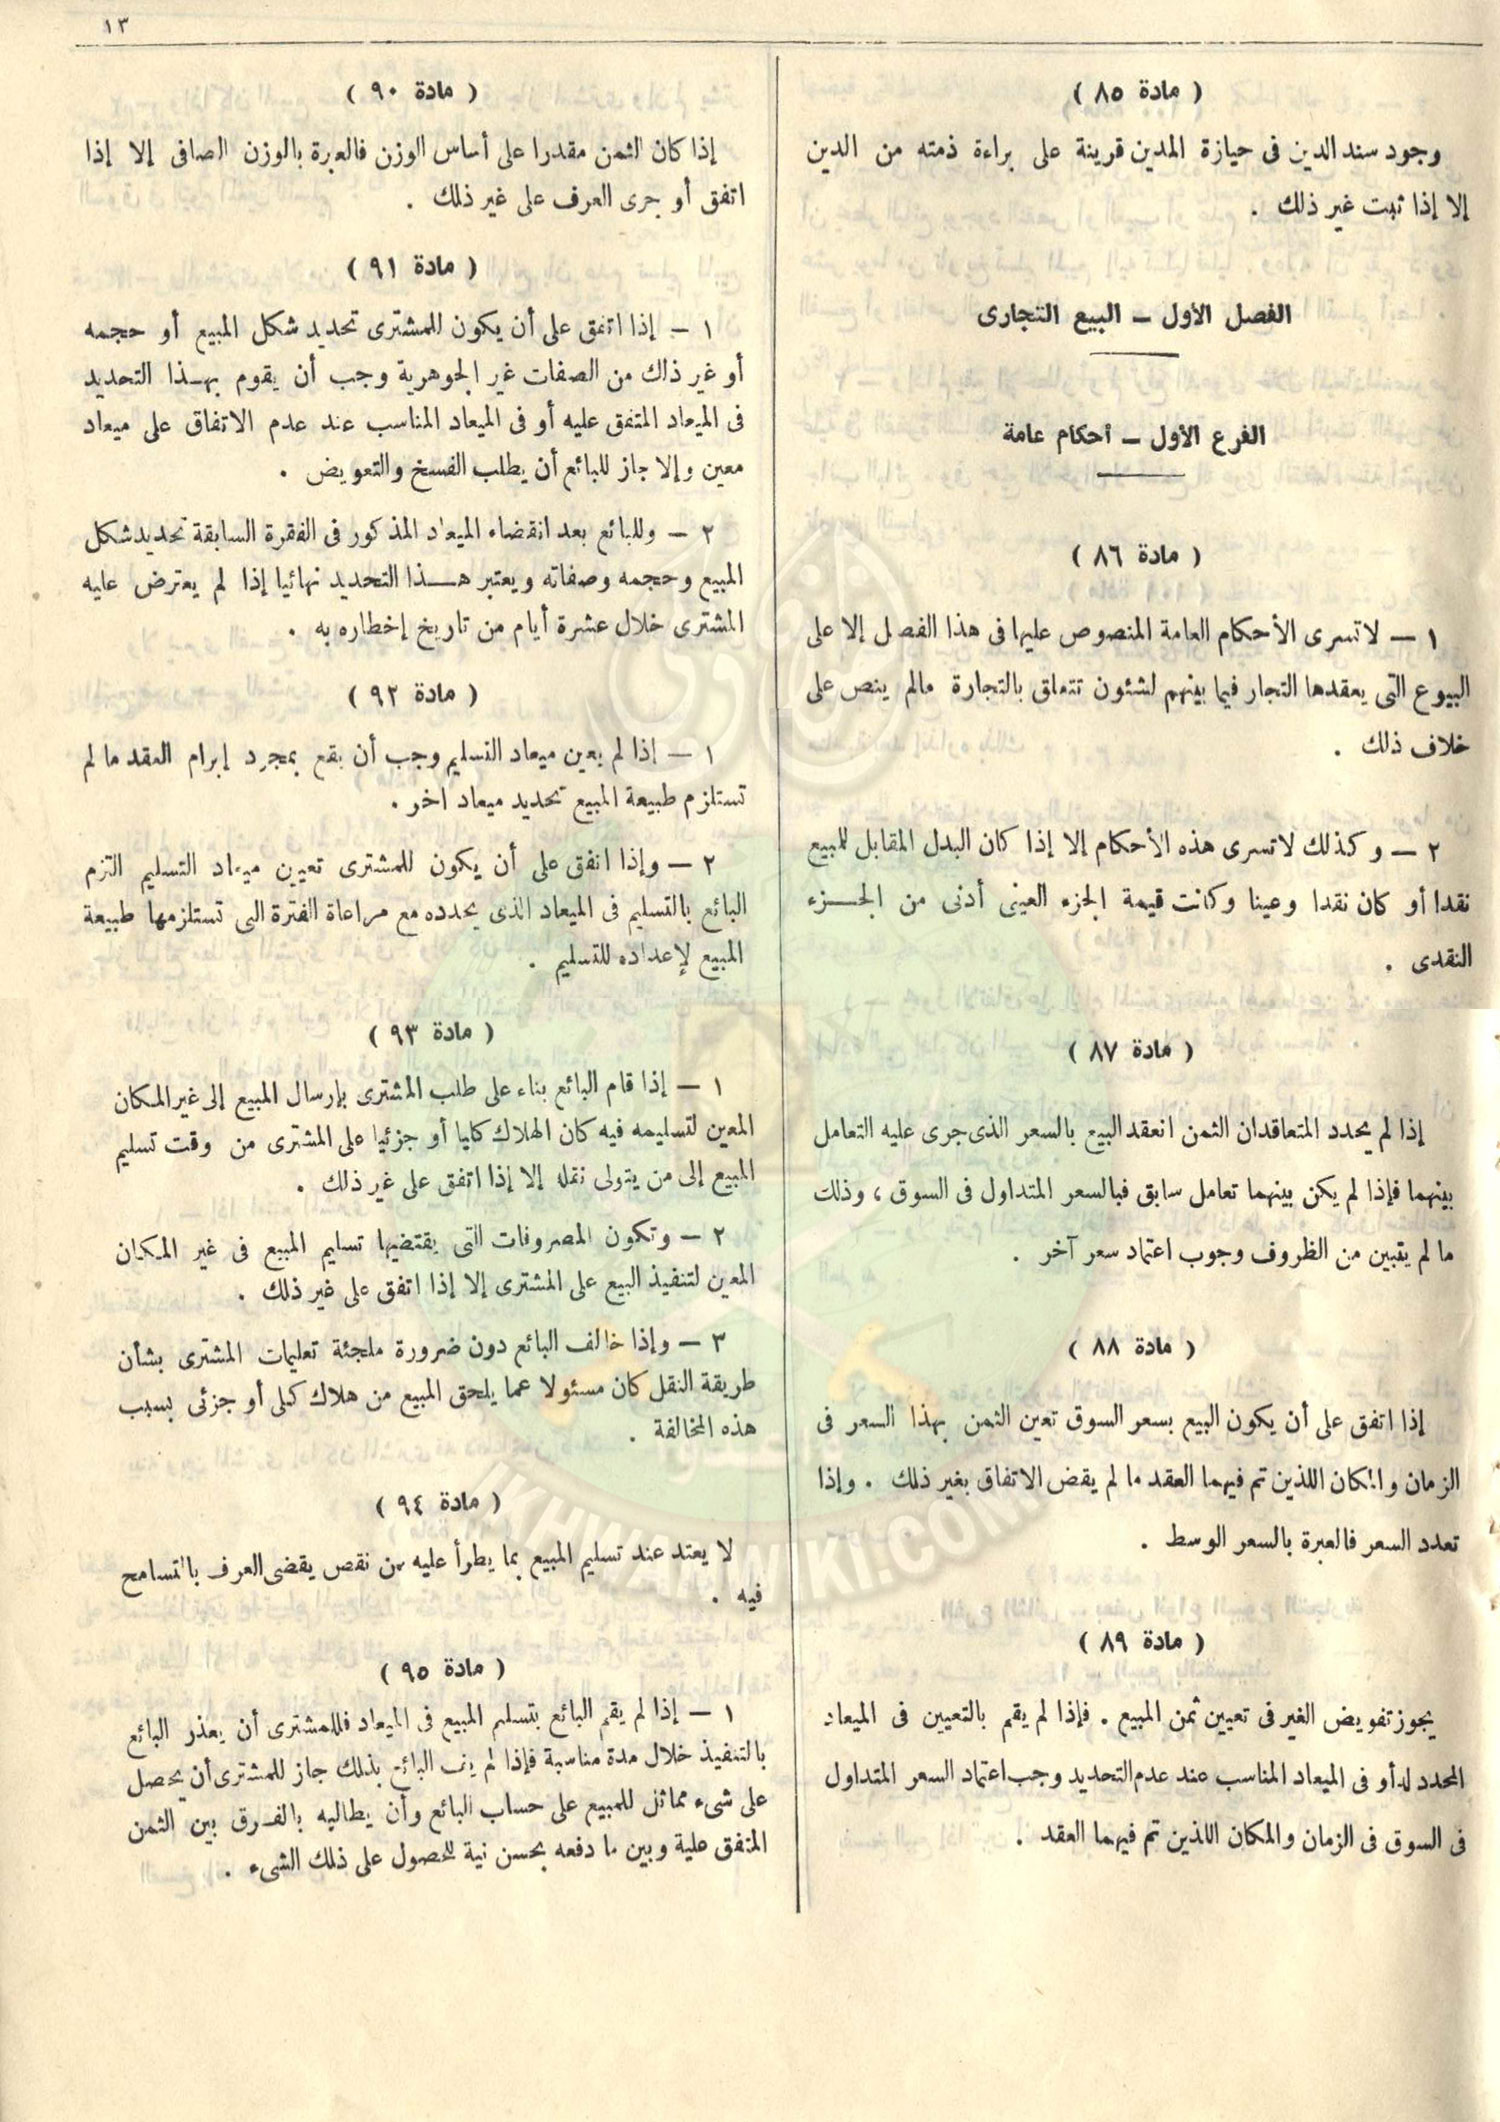 ١٣
( مادة ٨٥ )
وجود سند الدين فى حيازة المدين قرينة على براءة ذمته من الدين
إلا إذا ثبت غير ذلك .
الفصل الأول – البيع التجارى
الفرع الأول – أحكام عامة
( مادة ٨٦ )
١ – لا تسرى الأحكام العامة المنصوص عليها فى هذا الفصل إلا على
البيوع التى يعقدها التجار فيما بينهم لشئون تتعلق بالتجارة مالم ينص على
خلاف ذلك .
٢ – وكذلك لا تسرى هذه الأحكام إلا إذا كان البدل المقابل للمبيع
نقدا أو كان نقدا وعينا وكانت قيمة الجزء العينى أدنى من الجزء
النقدى .
( مادة ٨٧ )
إذا لم يحدد المتعاقدان الثمن انعقد البيع بالسعر الذى جرى عليه التعامل
بينهما فإذا لم يكن بينهما تعامل سابق فبالسعر المتداول فى السوق ، وذلك
ما لم يتبين من الظروف وجوب اعتماد سعر آخر .
( مادة ٨٨ )
إذا اتفق على أن يكون البيع بسعر السوق تعين الثمن بهذا السعر فى
الزمان والمكان اللذين تم فيهما العقد ما لم يقض الاتفاق بغير ذلك . وإذا
تعدد السعر فالعبرة بالسعر الوسط .
( مادة ٨٩ )
يجوز تفويض الغير فى تعيين ثمن المبيع . فإذا لم يقم بالتعيين فى الميعاد
المحدد له أو فى الميعاد المناسب عند عدم التحديد وجب اعتماد السعر المتداول
فى السوق فى الزمان والمكان اللذين تم فيهما العقد .
( مادة ٩٠ )
إذا كان الثمن مقدرا على أساس الوزن فالعبرة بالوزن الصافى إلا إذا
اتفق أو جرى العرف على غير ذلك .
( مادة ٩١ )
١ – إذا اتفق على أن يكون للمشترى تحديد شكل المبيع أو حجمه
أو غير ذلك من الصفات غير الجوهرية وجب أن يقوم بهذا التحديد
فى الميعاد المتفق عليه أو فى الميعاد المناسب عند عدم الاتفاق على ميعاد
معين وإلا جاز للبائع أن يطلب الفسخ والتعويض .
٢ – وللبائع بعد انقضاء الميعاد المذكور فى الفقرة السابقة تحديد شكل
المبيع وحجمه وصفاته ويعتبر هذا التحديد نهائيا إذا لم يعترض عليه
المشترى خلال عشرة أيام من تاريخ إخطاره به .
( مادة ٩٢ )
١ – إذا لم يعين ميعاد التسليم وجب أن يقع بمجرد إبرام العقد ما لم
تستلزم طبيعة المبيع تحديد ميعاد اخر .
٢ – وإذا اتفق على أن يكون للمشترى تعيين ميعاد التسليم التزم
البائع بالتسليم فى الميعاد الذى يحدده مع مراعاة الفترة التى تستلزمها طبيعة
المبيع لإعداده للتسليم .
( مادة ٩٣ )
١ – إذا قام البائع بناء على طلب المشترى بإرسال المبيع إلى غير المكان
المعين لتسليمه فيه كان الهلاك كليا أو جزئيا على المشترى من وقت تسليم
المبيع إلى من يتولى نقله إلا إذا اتفق على غير ذلك .
٢ – وتكون المصروفات التى يقتضيها تسليم المبيع فى غير المكان
المعين لتنفيذ البيع على المشترى إلا إذا اتفق على غير ذلك .
٣ – وإذا خالف البائع دون ضرورة ملجئة تعليمات المشترى بشأن
طريقة النقل كان مسئولا عما يلحق المبيع من هلاك كلى أو جزئى بسبب
هذه المخالفة .
( مادة ٩٤ )
لا يعتد عند تسليم المبيع بما يطرأ عليه من نقص يقضى العرف بالتسامح
فيه .
( مادة ٩٥ )
١ – إذا لم يقم البائع بتسليم المبيع فى الميعاد فللمشترى أن يعذر البائع
بالتنفيذ خلال مدة مناسبة فإذا لم يف البائع بذلك جاز للمشترى أن يحصل
على شىء مماثل للمبيع على حساب البائع وأن يطالبه بالفرق بين الثمن
المتفق علية وبين ما دفعه بحسن نية للحصول على ذلك الشىء .
IKHWANWIKI.COM